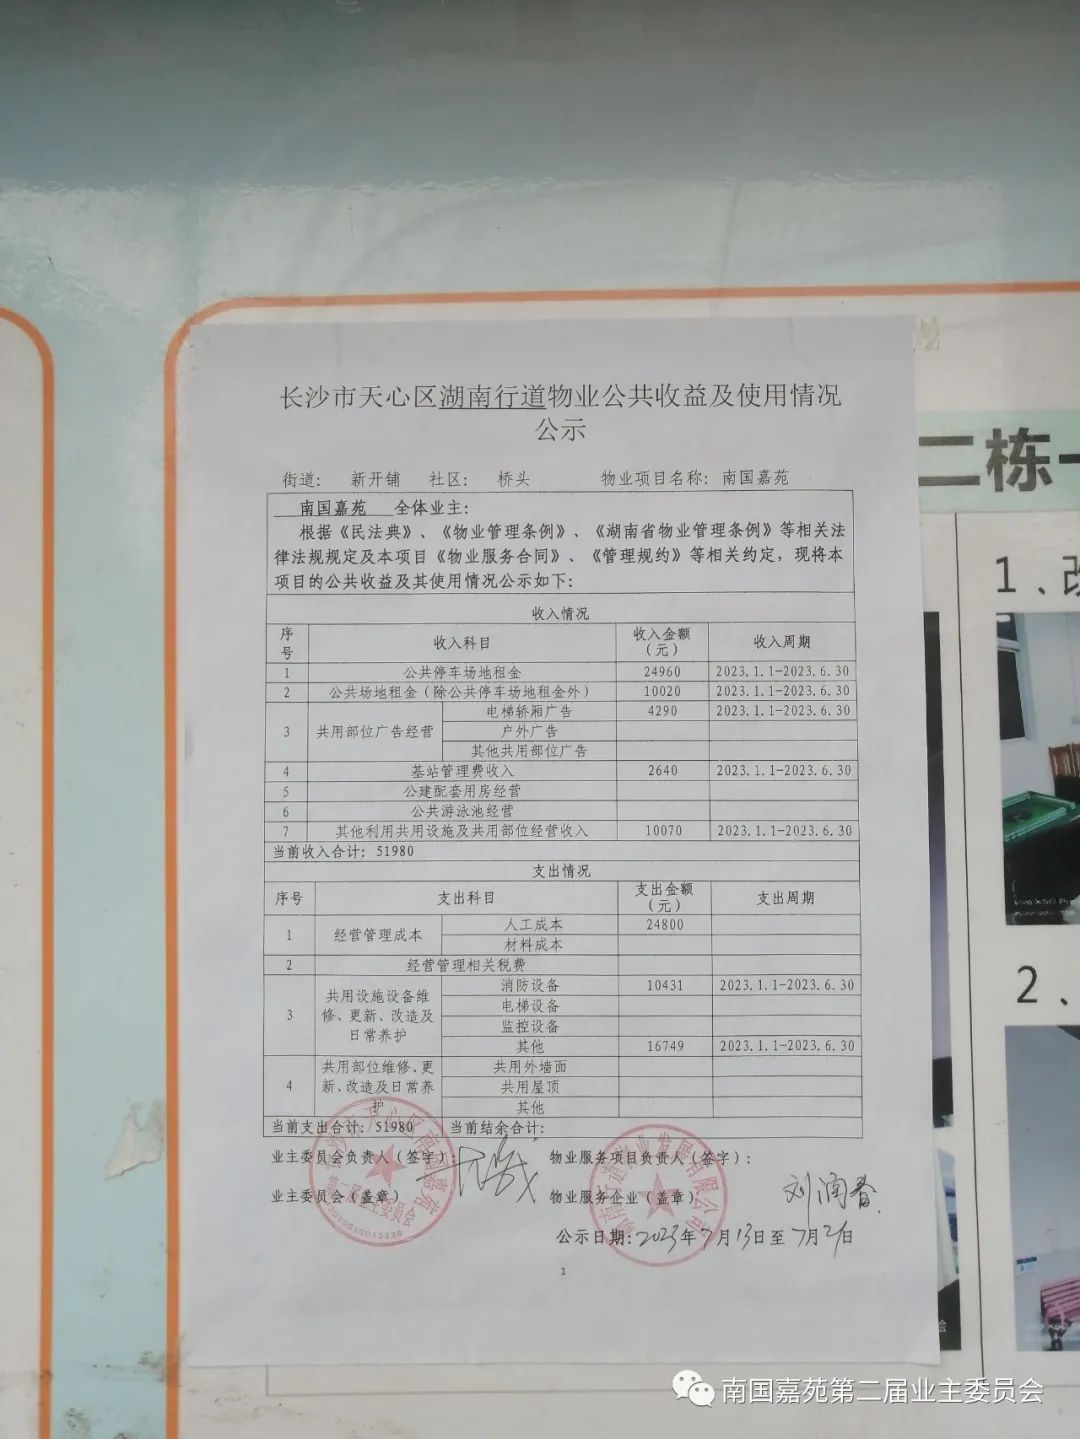 长沙市天心区湖南行道物业公共收益及使用情况
公示
街道： 新开铺 社区： 桥头 物业项目名称：南国嘉苑
南国嘉苑 全体业主：
根据《民法典》、《物业管理条例》、《湖南省物业管理条例》等相关法
律法规规定及本项目《物业服务合同》、《管理规约》等相关约定，现将本
项目的公共收益及其使用情况公示如下：
收入情况
序号 收入科目 收入金额（元） 收入周期
1 公共停车场地租金 24960 2023.1.1-2023.6.30
2 公共场地租金（除公共停车场地租金外） 10020 2023.1.1-2023.6.30
3 共用部位广告经营 电梯轿厢广告 4290 2023.1.1-2023.6.30
户外广告
其他共用部位广告
4 基站管理费收入 2640 2023.1.1-2023.6.30
5 公建配套用房经营
6 公共游泳池经营
7 其他利用共用设施及共用部位经营收入 10070 2023.1.1-2023.6.30
当前收入合计：51980
支出情况
序号 支出科目 支出金额（元） 支出周期
1 经营管理成本 人工成本 24800
材料成本
2 经营管理相关税费
3 共用设施设备维修、更新、改造及日常养护 消防设备 10431 2023.1.1-2023.6.30
电梯设备
监控设备
其他 16749 2023.1.1-2023.6.30
4 共用部位维修、更新、改造及日常养护 共用外墙面
共用屋顶
其他
当前支出合计：51980 当前结余合计：
业主委员会负责人（签字）： 物业服务项目负责人（签字）：
业主委员会（盖章） 物业服务企业（盖章） 刘润香
公示日期：2023年7月13日至7月21日
1
二栋
1、改
2、
南国嘉苑第二届业主委员会